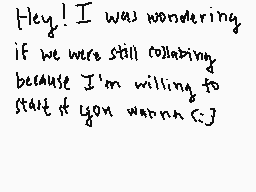 Hey! I was wondering
if we were still collabing
because I'm willing to
start if you wanna (:3